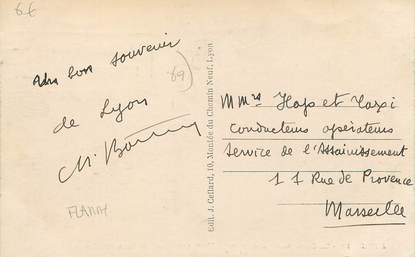 6€
bon souvenir
de Lyon
69
FLAMM
Edit. J. Cellard, 10, Montée du Chemin Neuf, Lyon
MMrs et
conducteurs opérateurs
Service de l'Assainissement
11 Rue de Provence
Marseille